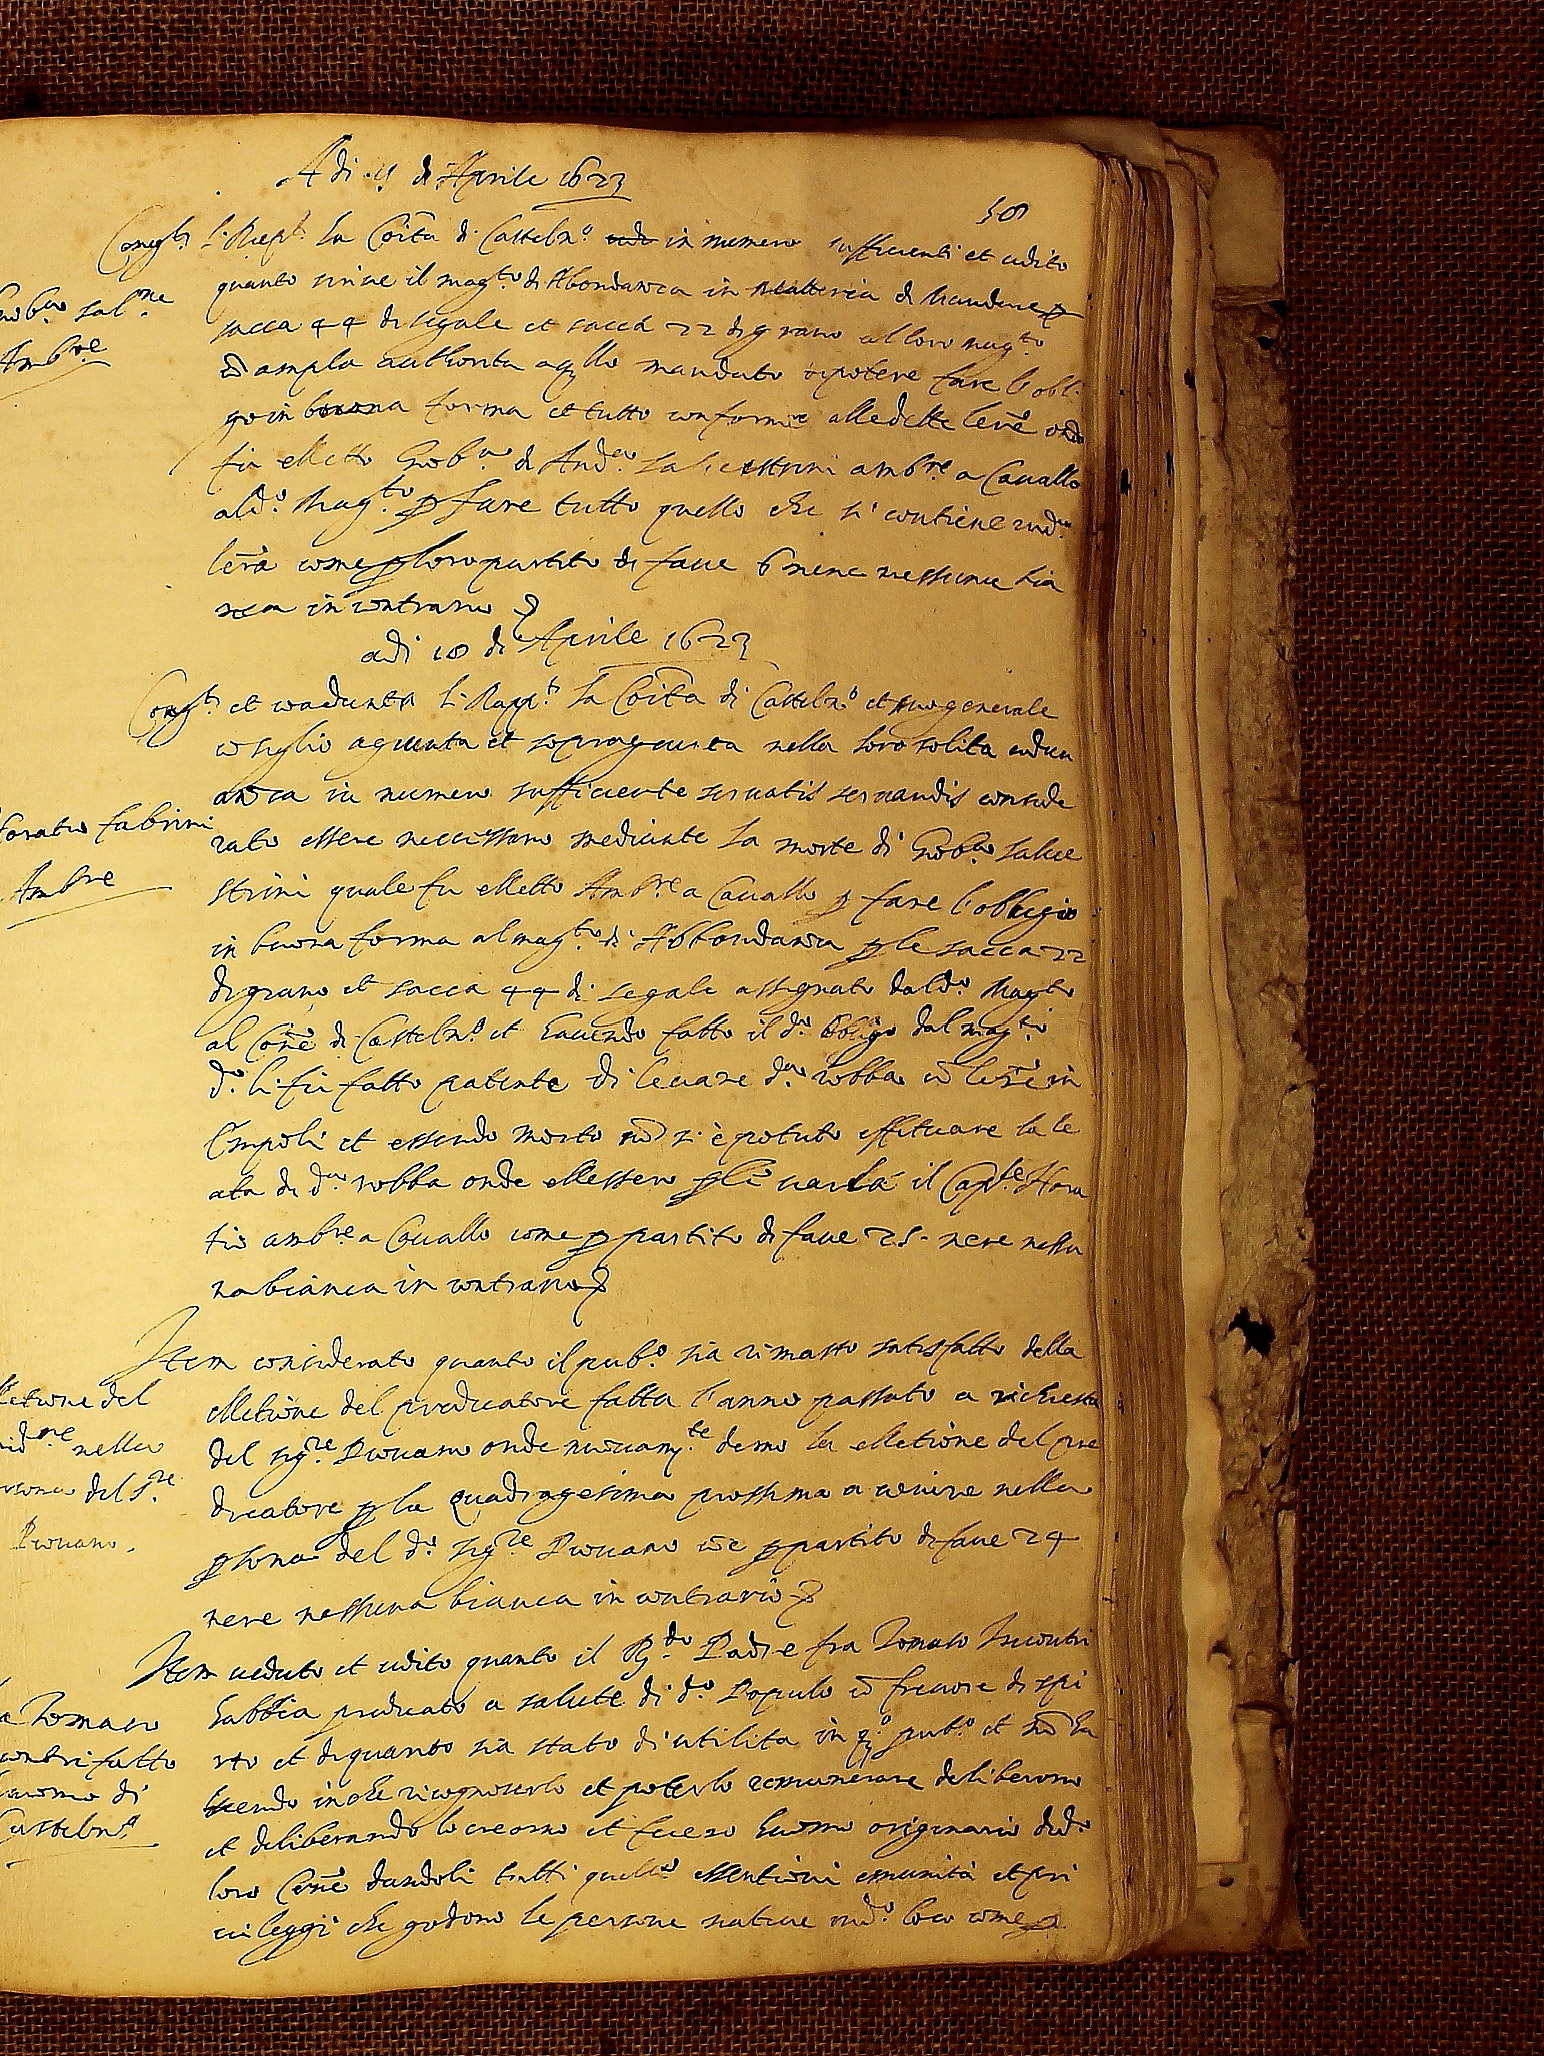 Adi di Aprile 1623
58
Cong.ti li Rapp.ti la Coita di Casteln.o in numero sufficienti et udito
quanto scrive il mag.to di Abondanza in di
sacca 44 di segale et sacca 22 di grano al loro mag.to
ampla authorita mandato potere fare l'obli
go in buona forma et tutto conforme alle dette
fu eletto Giob.a di And.a Salvestrini amb.re a Cavallo
al d.o Mag.to p fare tutto quello che si contiene in d.a
lera come p loro partito di fave 6 nere nessuna bia
nca in contrario
Giob.a Sal.ne
Amb.re
adi 18 di Aprile 1623
Cong.ti et coadunata li Rapp.ti la Coita di Casteln.o et suo generale
cosiglio agiunta et sopragiunta nella loro solita adun
anza in numero sufficiente servatis servandis conside
rato essere neccessario mediante la morte di Giob.a Salve
strini quale fu eletto Amb.re a Cavallo p fare l'obbligo
in buona forma al mag.to di Abbondanza p le sacca 22
di grano et sacca 44 di segale assegnato dal d.o Mag.to
al Coñe di Casteln.o et havendo fatto il d.o obligo dal mag.to
d.o li fu fatto patente di levare d.a robba
Empoli et essendo morto nō si è potuto effituare la le
ata di d.a robba onde elessero il Cap.le Hora
tio amb.re a Cavallo come p partito di fave 25 nere nessu
na bianca in contrario
Horatio fabrini
Ambre
Item considerato quanto il pub.o sia rimasto satisfatto della
eletione del predicatore fatta l'anno passato a richiesta
del sig.re Piovano onde nuovam.te derno la eletione del pre
dicatore p la quadragesima prossima a venire nella
psona del d.o sig.re Piovano cōe p partito di fave 24
nere nessuna bianca in contrario
letione del
nella
del S.re
Piovano.
Item veduto et udito quanto il R.do Padre fra Tomaso Incontri
habbia predicato a salute di d.o Populo cō frevore di spi
rto et di quanto sia stato di utilita in pub.o et nō ha
vendo in che ricognoscerlo et poterlo remunerare deliberorno
et deliberando lo creorno et fecero huomo originario di d.o
loro Coñe dandoli tutti quelli essentioni emunità et pri
vileggi che godono le persone native in d.o loco come
Tomaso
contri fatto
huomo di
Casteln.o